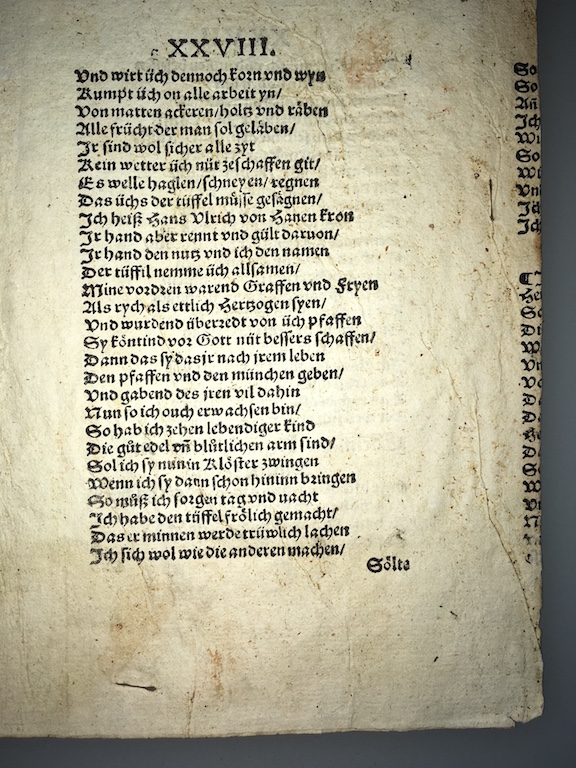 XXVIII.
Vnd wirt üch dennoch korn vnd wyn
Kumpt üch on alle arbeit yn/
Von matten ackeren/holtz vnd räben
Alle frücht der man sol geläben/
Jr sind wol sicher alle zyt
Kein wetter üch nüt zeschaffen git/
Es welle haglen/schneyen/regnen
Das üchs der tüffel müsse gesägnen/
Jch heiß Hans Vlrich von Hanen kron
Jr hand aber rennt vnd gült daruon/
Jr hand den nutz vnd ich den namen
Der tüffil nemme üch allsamen/
Mine vordren warend Graffen vnd Fryen
Als rych als ettlich Hertzogen syen/
Vnd wurdend überredt von üch pfaffen
Sy köntind vor Gott nüt bessers schaffen/
Dann das sy das jr nach jrem leben
Den pfaffen vnd den münchen geben/
Vnd gabend des jren vil dahin
Nun so ich ouch erwachsen bin/
So hab ich zehen lebendiger kind
Die gůt edel vñ blůtlichen arm sind/
Sol ich sy nun in Klöster zwingen
Wenn ich sy dann schon hininn bringen
So můß ich sorgen tag vnd nacht
Jch habe den tüffel frölich gemacht/
Das er minnen werde trüwlich lachen
Jch sich wol wie die anderen machen/
Sölte
So
So
Añ
Jch
Wi
So
Wi
Vn
Jch
Jch